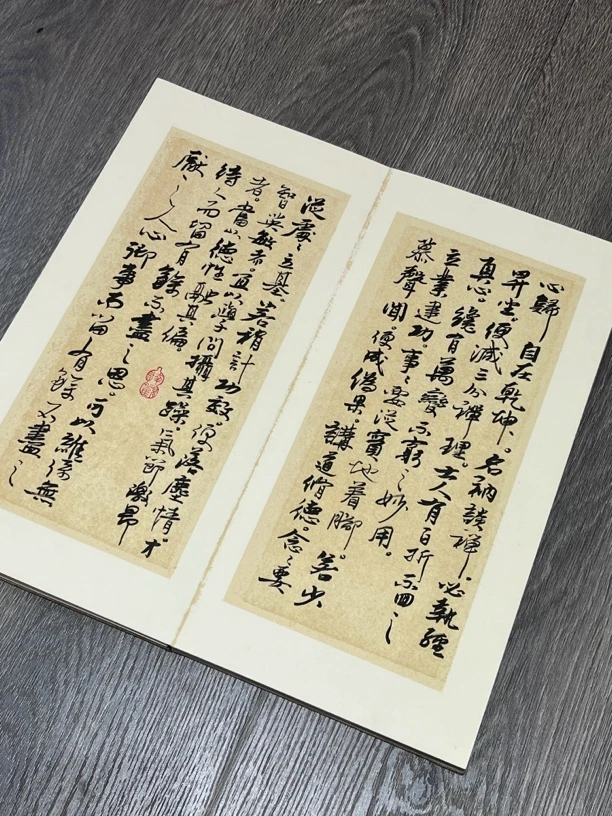 心歸自在乾坤。名衲談禪。必執經
昇坐。便減三分禪理。士人有百折不回之
真心。纔有萬變不窮之妙用。
立業建功。事〻要從實地着腳。若少
慕聲聞。便成偽果。講道修德。念〻要
從處〻立基。若稍計功效。便落塵情。才
智英敏者。宜以學問攝其躁。氣節激昂
者。當以德性融其偏。
待人而留有餘不盡之恩。可以維繫無
厭之人心。御事而留有餘不盡之